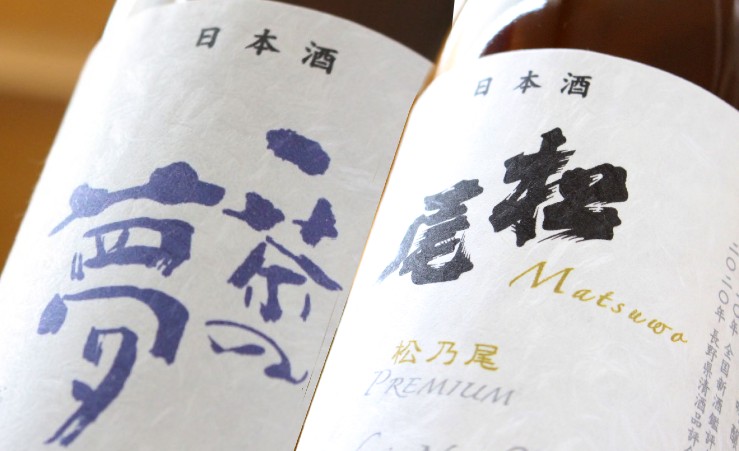 日本酒
一茶の
夢
日本酒
松
尾
Matsuwo
松乃尾
PREMIUM
全国新酒鑑評
二〇二〇年 長野県清酒品評会